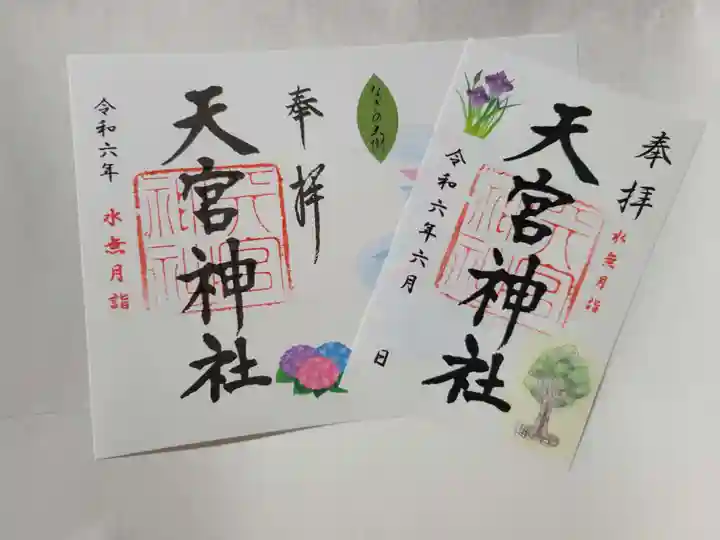 なぎの大樹
奉拝
天宮神社
令和六年
水無月詣
日
奉拝
水無月詣
天宮神社
令和六年六月